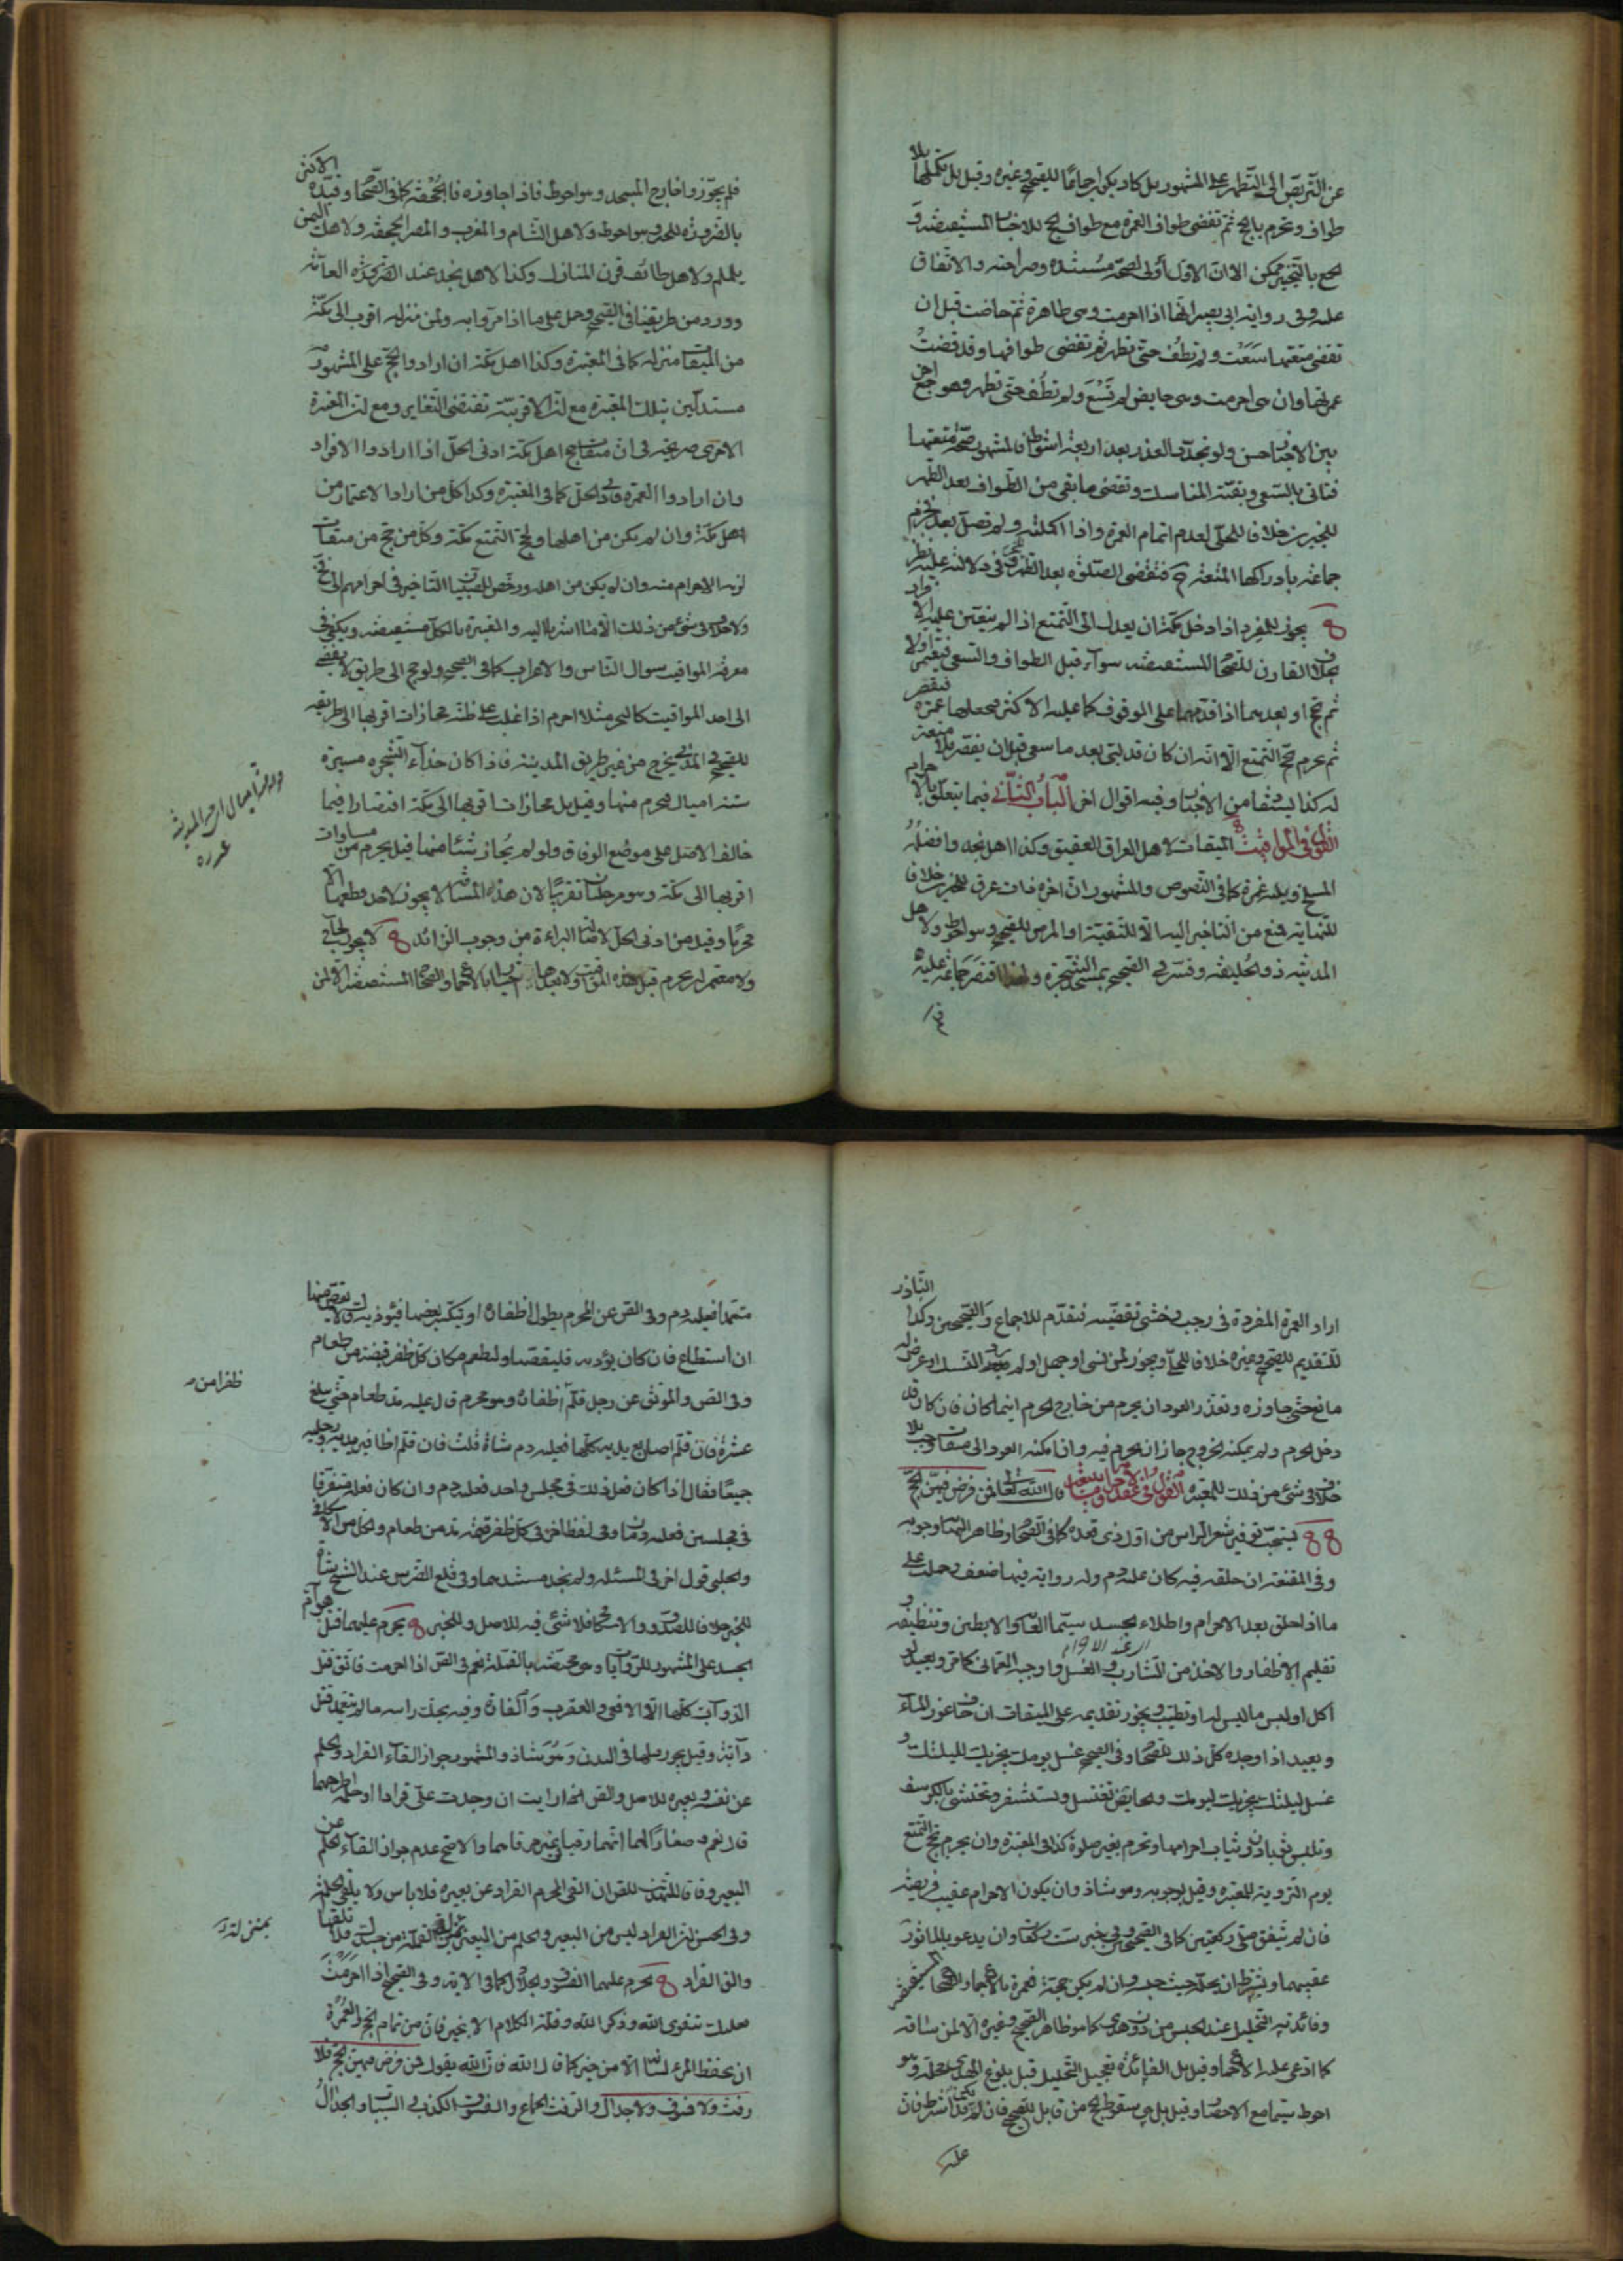 عن التربص الى التطهر على المشهور بل كاد يكون اجماعا للصحيح وغيره وقيل بل تكملها بلا
طواف وتحرم بالحج ثم تقضى طواف العمرة مع طواف الحج للاخبار المستفيضة و
الجمع بالتخيير ممكن الا ان الاول اولى لصحة مستنده وصراحته والاتفاق
عليه وفي رواية ابى بصير انها اذا احرمت وهى طاهرة ثم حاضت قبل ان
تقضى متعتها سعت ولم تطف حتى تطهر ثم تقضى طوافها وقد قضت
عمرتها وان هى احرمت وهى حايض لم تسع ولم تطف حتى تطهر وهو جمع اخر
بين الاخبار حسن ولو تجدد العذر بعد اربعة اشواط فالمشهور صحة متعتها
فتاتى بالسعى وبقية المناسك وتقضى ما بقى من الطواف بعد الطهر
للخبرين خلافا للحلى لعدم اتمام العمرة واذا اكملته ولم تصل بعد جزم
جماعة بادراكها المتعة ح فتقضى الصلوة بعد التطهر وفى دلالته عليه نظر
يجوز للمفرد اذا دخل مكة ان يعدل الى التمتع اذا لم يتعين عليه الافراد
بخلاف القارن للصحاح المستفيضة سواء قبل الطواف والسعى فيعتمر اولا
ثم يحج او بعدهما اذا قدمهما على الوقوف كما عليه الاكثر فيجعلها عمرة فيقصر
ثم يحرم بحج التمتع الا انه ان كان قد لبى بعد ما سعى قبل ان يقصر فلا متعة
له كذا يستفاد من الاخبار وفيه اقوال اخر الباب الثانى فيما يتعلق بالاحرام
القول فى المواقيت الميقات لاهل العراق العقيق وكذا اهل نجد وافضله
المسلخ ويليه غمرة كما فى النصوص والمشهور ان اخره ذات عرق للخبرين خلافا
للنهاية فمنع من التاخير اليه الا للتقية او المرض للصحيح وهو احوط ولاهل
المدينة ذو الحليفة وفسر فى الصحيح بمسجد الشجرة ولهذا اقتصر جماعة عليه
فلم يجوزوا خارج المسجد وهو احوط فاذا جاوزه فالجحفة كما فى الصحاح وقيده الاكثر
بالضرورة للخبر وهو احوط ولاهل الشام والمغرب والمصر الجحفة ولاهل اليمن
يلملم ولاهل طائف قرن المنازل وكذا لاهل نجد عند العامة
وورد من طريقنا فى الصحيح وحمل على ما اذا مروا به ولمن منزله اقرب الى مكة
من الميقات منزله كما فى المعتبرة وكذا اهل مكة ان ارادوا الحج على المشهور
مستدلين بتلك المعتبرة مع ان الاقربية تقتضى التغاير ومع ان المعتبرة
الاخرى صريحة فى ان ميقات حج اهل مكة ادنى الحل اذا ارادوا الافراد
وان ارادوا العمرة فادنى الحل كما فى المعتبرة وكذا كل من اراد الاعتمار من
اهل مكة وان لم يكن من اهلها ولحج التمتع مكة وكل من حج من ميقات
لزمه الاحرام منه وان لم يكن من اهله ورخص للصبيان التاخير فى احرامهم الى فخ
ولا خلاف فى شئ من ذلك الا ما اشرنا اليه والمعتبرة بالكل مستفيضة ويكفى فى
معرفة المواقيت سوال الناس والاعراب كما فى الصحيح ولو حج الى طريق لا يفضى
الى احد المواقيت كالبحر مثلا احرم اذا غلب على ظنه محاذات اقربها الى طريقه
للصحيح فى المدنى يخرج من غير طريق المدينة فاذا كان حذاء الشجرة مسيرة
ستة اميال فيحرم منها وقيل بل محاذات اقربها الى مكة اقتصارا فيما
خالف الاصل على موضع الوفاق ولو لم يحاذ شيئا منها قيل يحرم من مساوات
اقربها الى مكة وهو مرحلتان تقريبا لان هذه المسافة لا يجوز لاحد قطعها الا
محرما وقيل من ادنى الحل لاصالة البراءة من وجوب الزائد لا يجوز لحاج
ولا معتمر ان يحرم قبل هذه المواقيت ولا بعدها بالاجماع والصحاح المستفيضة الا لمن
اراد العمرة المفردة فى رجب وخشى تقضيه فيقدم للاجماع والصحيحين وكذا الناذر
للتقديم للصحيح وغيره خلافا للحلى ويجوز لمن نسى او جهل او لم يرد النسك او عرض له
مانع حتى جاوزه وتعذر العود ان يحرم من خارج الحرم اينما كان فان كان قد
دخل الحرم ولم يمكنه الخروج جاز ان يحرم فيه وان امكنه العود الى ميقات وجب بلا
خلاف فى شئ من ذلك للمعتبرة القول فى عقد الاحرام قال الله تعالى فمن فرض فيهن الحج
يستحب توفير شعر الراس من اول ذى قعدة كما فى الصحاح وظاهر النهاية وجوبه
وفى المقنعة ان حلقه فيه كان عليه دم وله رواية فيها ضعف وحملت على
ما اذا حلق بعد الاحرام واطلاء الجسد سيما العانة والابطين وتنظيفه و
تقليم الاظفار والاخذ من الشارب والغسل واوجبه العمانى كما مر ويعيد لو
اكل او لبس ما ليس له او تطيب ويجوز تقديمه على الميقات ان خاف عوز الماء
ويعيد اذا وجده كل ذلك للصحاح وفى الصحيح غسل يومك يجزيك لليلتك و
غسل ليلتك يجزيك ليومك والحايض تغتسل وتستثفر وتحتشى بالكرسف
وتلبس ثوبا دون ثياب احرامها وتحرم بغير صلوة كذا فى المعتبرة وان يحرم بحج التمتع
يوم التروية للمعتبرة وقيل بوجوبه وهو شاذ وان يكون الاحرام عقيب فريضة
فان لم يتفق صلى ركعتين كما فى الصحيحين وفى خبر ست ركعات وان يدعو بالماثور
عقيبهما ويشترط ان يحله حيث حبسه وان لم يكن حجة فعمرة بالاجماع والصحاح المستفيضة
وفائدته التحليل عند الحبس من دون هدى كما هو ظاهر الصحيح وغيره الا لمن ساقه
كما ادعى عليه الاجماع وقيل بل الفائدة تعجيل التحليل قبل بلوغ الهدى محله وهو
احوط سيما مع الاحصار وقيل بل هى سقوط الحج من قابل للصحيح
متعمدا فعليه دم وفى الصحيح عن المحرم يطول اظفاره او ينكسر بعضها فيؤذيه قال لا يقص منها
ان استطاع فان كان يؤذيه فليقصها وليطعم مكان كل ظفر قبضة من طعام
وفى الصحيح والموثق عن رجل قلم اظفاره وهو محرم قال عليه مد طعام حتى يبلغ
عشرة فان قلم اصابع يديه كلها فعليه دم شاة قلت فان قلم اظافير يديه ورجليه
جميعا فقال اذا كان فعل ذلك فى مجلس واحد فعليه دم وان كان فعله متفرقا
فى مجلسين فعليه دمان وفى لفظ اخر فى كل ظفر قيمة مد من طعام
والحلبى قول اخر فى المسئلة ولم نجد مستندهما وفى قلع الضرس عند الشيخ شاة
للخبر خلافا للصدوق والاسكافى فلا شئ فيه للاصل وللخبر يحرم عليهما قتل هوام
الجسد على المشهور للروايات وهى مختصة بالقملة نعم فى الصحيح اذا احرمت فاتق قتل
الدواب كلها الا الافعى والعقرب والفارة وفيه يحك راسه ما لم يتعمد قتل
دابة وقيل يجوز قتلها فى البدن وهو شاذ والمشهور جواز القاء القراد والحلم
عن نفسه وبعيره للاصل والصحيح ارايت ان وجدت على قرادا او حلمة اطرحهما
قال نعم وصغارا لهما انهما رقيا فى غير مرقاهما والاصح عدم جواز القاء الحلم عن
البعير وفاقا للتهذيب للصحيح ان القى المحرم القراد عن بعيره فلا باس ولا يلقى الحلمة
وفى الحسن ان القراد ليس من البعير والحلم من البعير بمنزلة القملة من جسدك فلا تلقها
والق القراد يحرم عليهما الفسوق والجدال كما فى الاية وفى الصحيح اذا احرمت
فعليك بتقوى الله وذكر الله وقلة الكلام الا بخير فان من تمام الحج والعمرة
ان يحفظ المرء لسانه الا من خير كما قال الله فان الله يقول فمن فرض فيهن الحج فلا
رفث ولا فسوق ولا جدال والرفث الجماع والفسوق الكذب والسباب والجدال